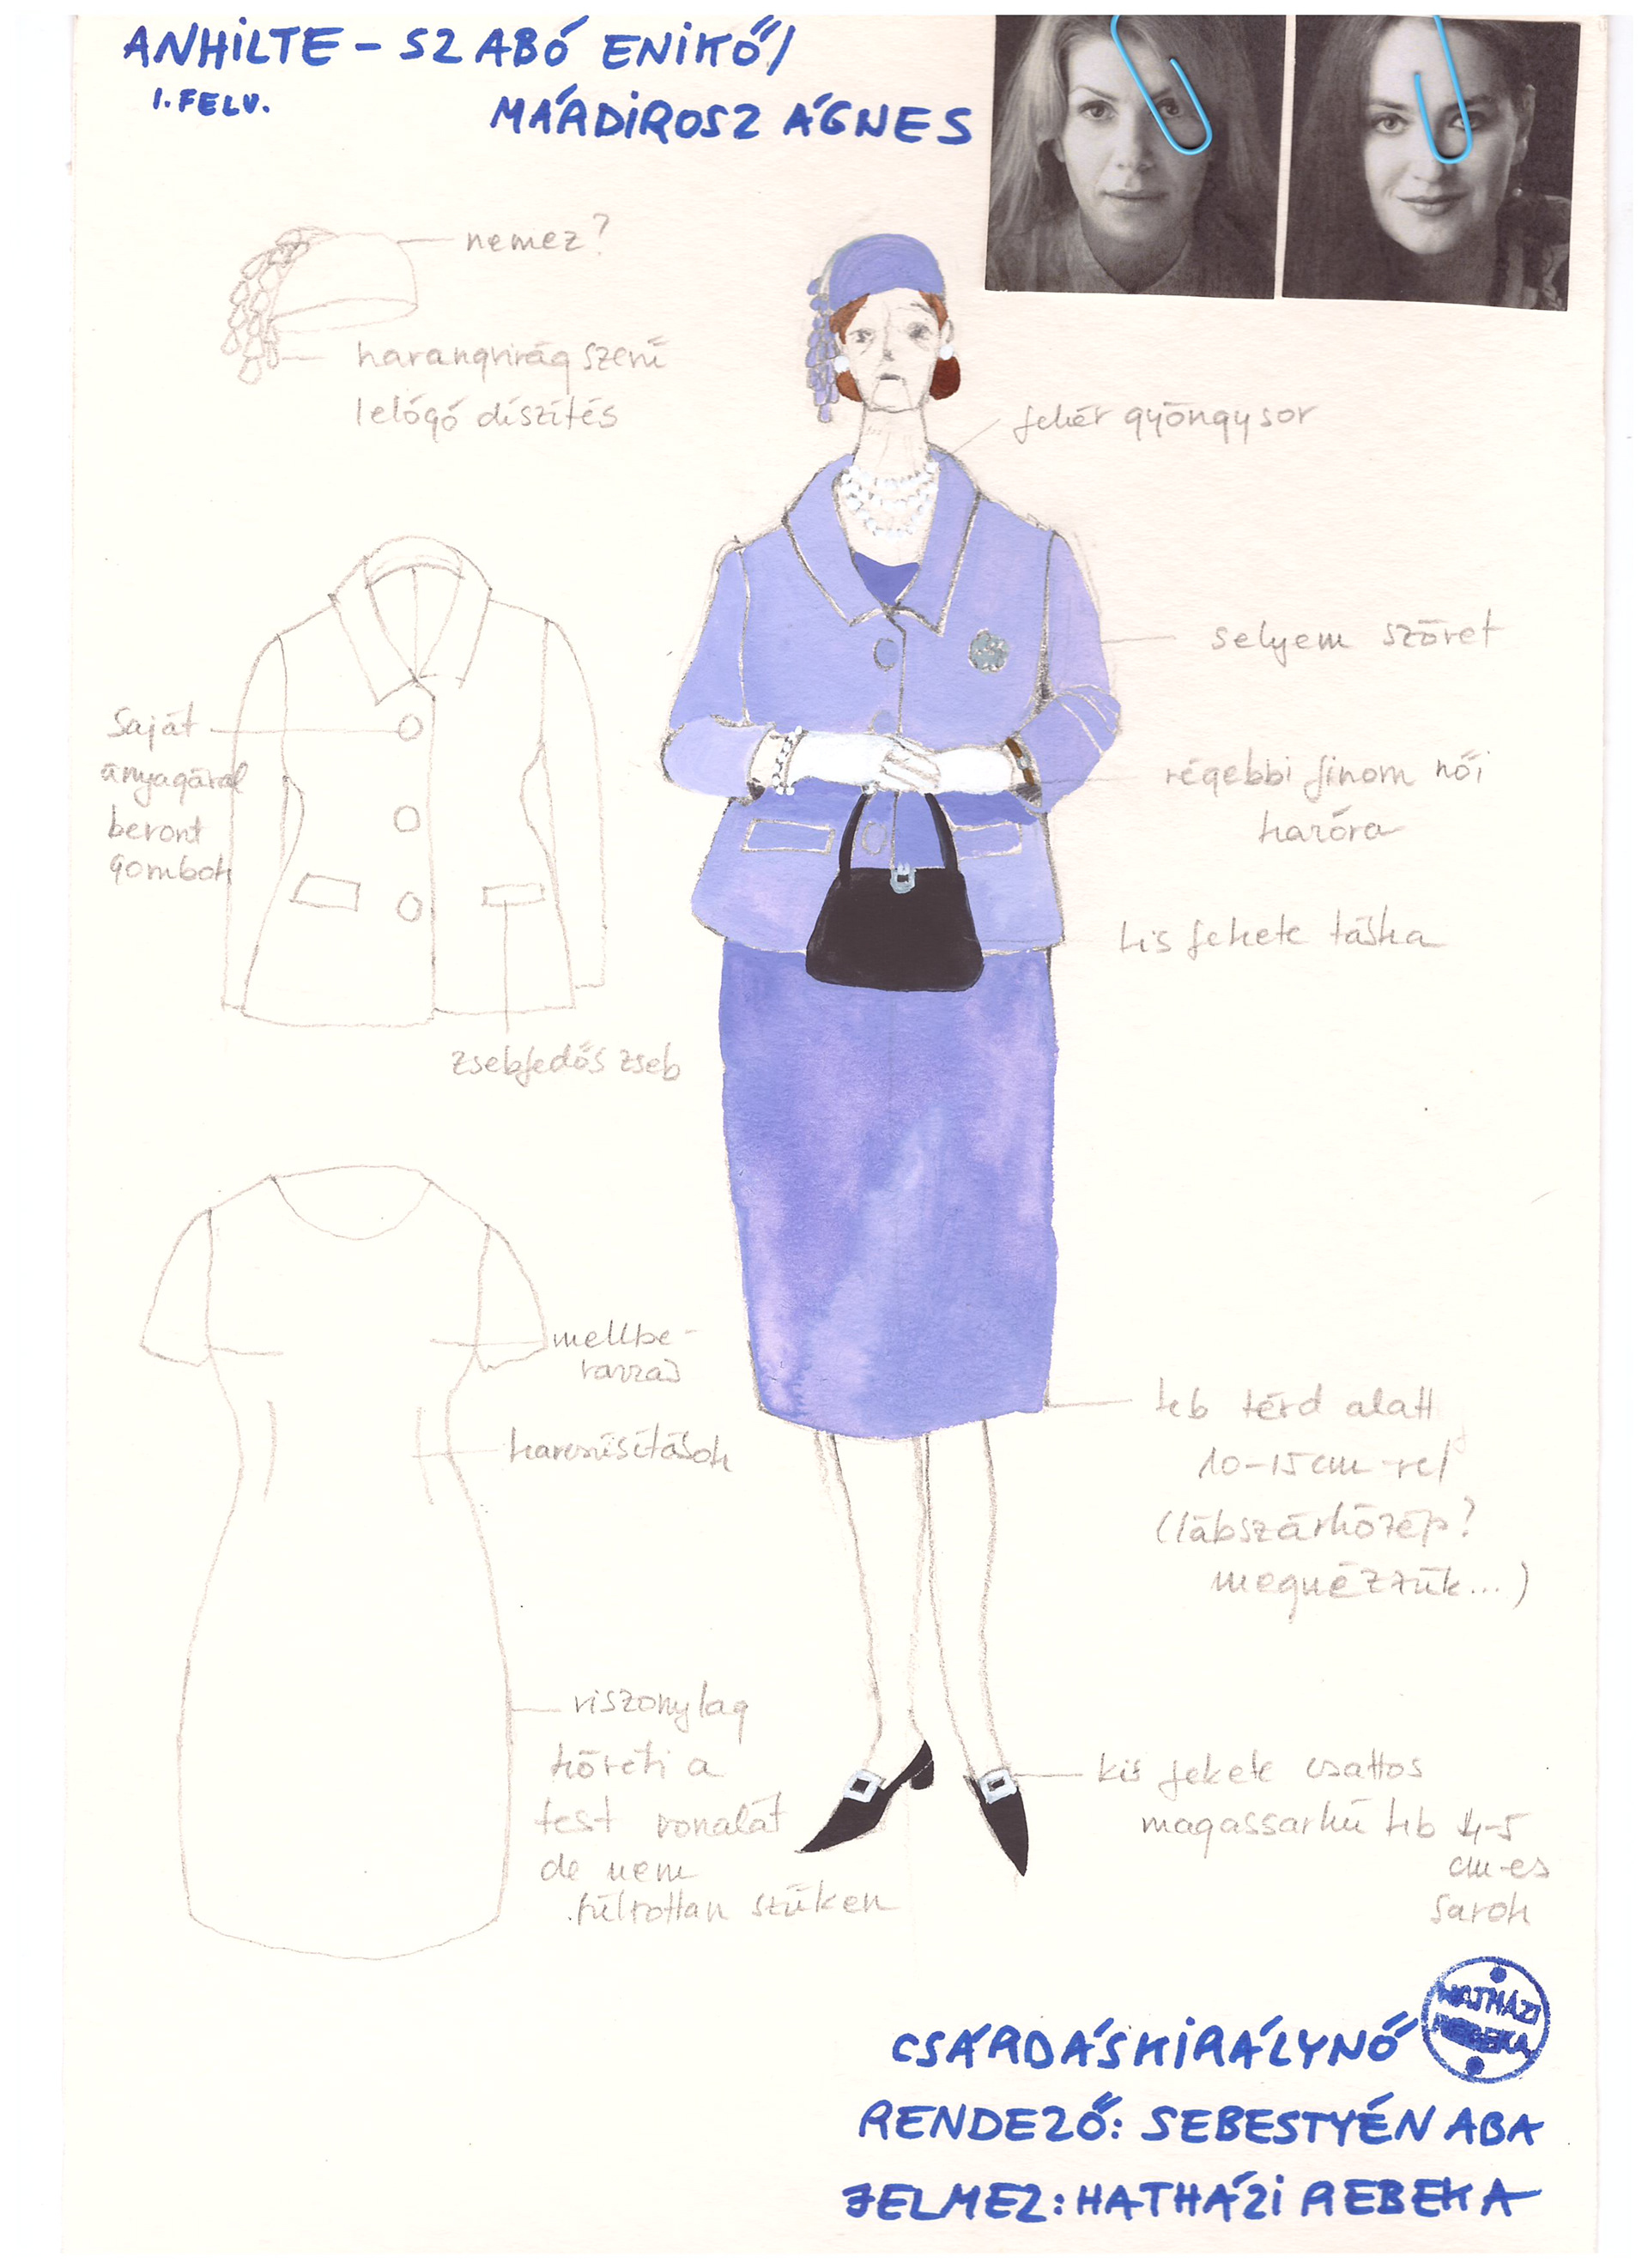 ANHILTE – SZABÓ ENIKŐ/
I. FELV.
MÁRDIROSZ ÁGNES
nemez?
harangvirág szerű
lelógó díszítés
fehér gyöngysor
selyem szövet
Saját
anyagával
bevont
gombok
régebbi finom női
karóra
kis fekete táska
zsebfedős zseb
mellbe-
varrás
karcsúsítások
kb térd alatt
10-15 cm-rel
(lábszárközép?
megnézzük...)
viszonylag
követi a
test vonalát
de nem
túlzottan szűken
kis fekete csattos
magassarkú kb 4-5
cm-es
sarok
HATHÁZI
REBEKA
CSÁRDÁSKIRÁLYNŐ
RENDEZŐ: SEBESTYÉN ABA
JELMEZ: HATHÁZI REBEKA